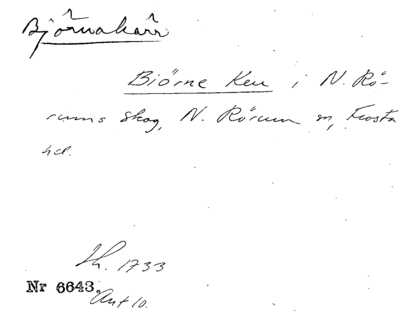 Björnakärr
Biörne Kerr i N. Rö-
rums Skog, N. Rörum sn, Frosta
hd.
Lh. 1733
Nr 6643.
Ant 10.